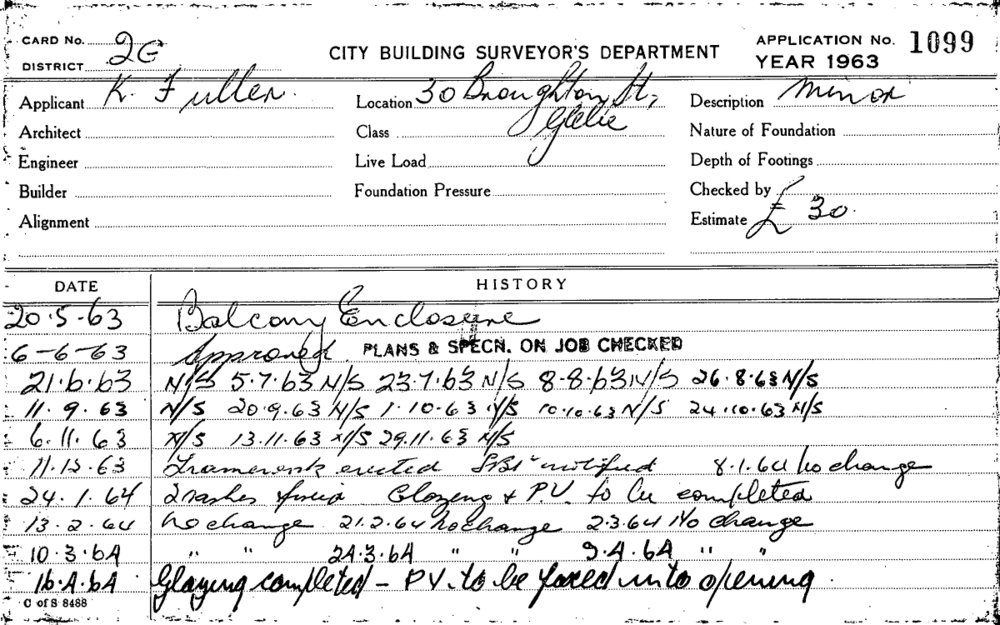 CARD No. 2G
DISTRICT
CITY BUILDING SURVEYOR'S DEPARTMENT
APPLICATION No. 1099
YEAR 1963
Applicant K. Fuller.
Location 30 Broughton St,
Glebe
Description Minor
Architect
Class
Nature of Foundation
Engineer
Live Load
Depth of Footings
Builder
Foundation Pressure
Checked by
Alignment
Estimate £30.
DATE HISTORY
20.5-63 Balcony Enclosure
6-6-63 Approved. PLANS & SPECN. ON JOB CHECKED
21.6.63 N/S 5.7.63 N/S 23.7.63 N/S 8-8.63 N/S 26.8.63 N/S
11.9.63 N/S 20.9.63 N/S 1.10.63 N/S 10.10.63 N/S 24.10.63 N/S
6.11.63 N/S 13.11.63 N/S 29.11.63 N/S
11.12.63 Framework erected notified 8.1.64 No change
24.1.64 2 sashes fixed Glazing & P.V. to be completed
13.2.64 No change 21.2.64 No change 2.3.64 No change
10.3.64 " " 24.3.64 " " 9.4.64 " "
16.4.64 Glazing completed - P.V. to be fixed into opening.
C of S 8488